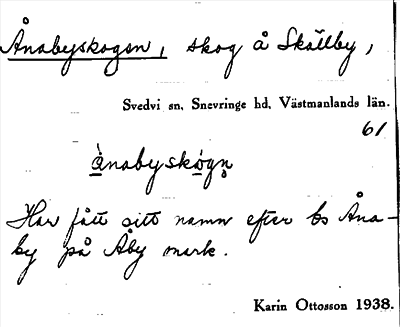 Ånabyskogen, skog å Skällby,
Svedvi sn, Snevringe hd, Västmanlands län.
61
ànabyskògn̥
Har fått sitt namn efter bs Åna-
by på Åby mark.
Karin Ottosson 1938.